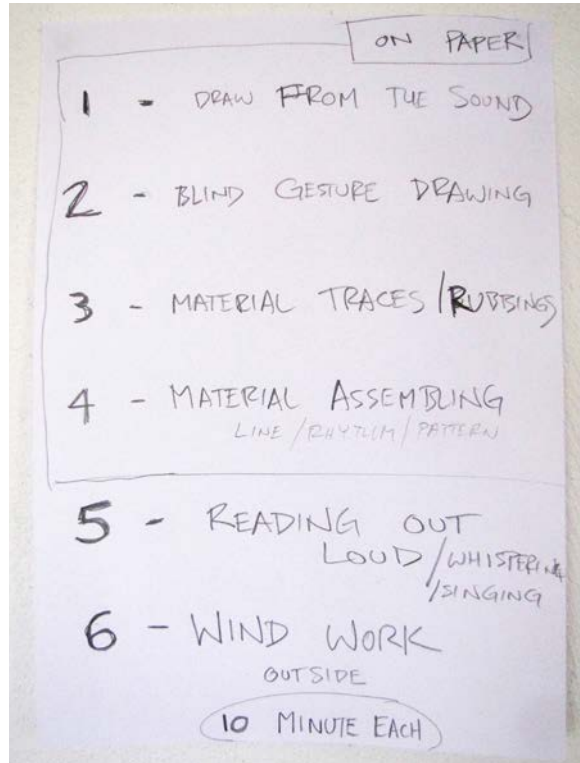 ON PAPER
1 - DRAW FROM THE SOUND
2 - BLIND GESTURE DRAWING
3 - MATERIAL TRACES / RUBBINGS
4 - MATERIAL ASSEMBLING
LINE / RHYTHM / PATTERN
5 - READING OUT
LOUD / WHISPERING
/ SINGING
6 - WIND WORK
OUTSIDE
10 MINUTE EACH